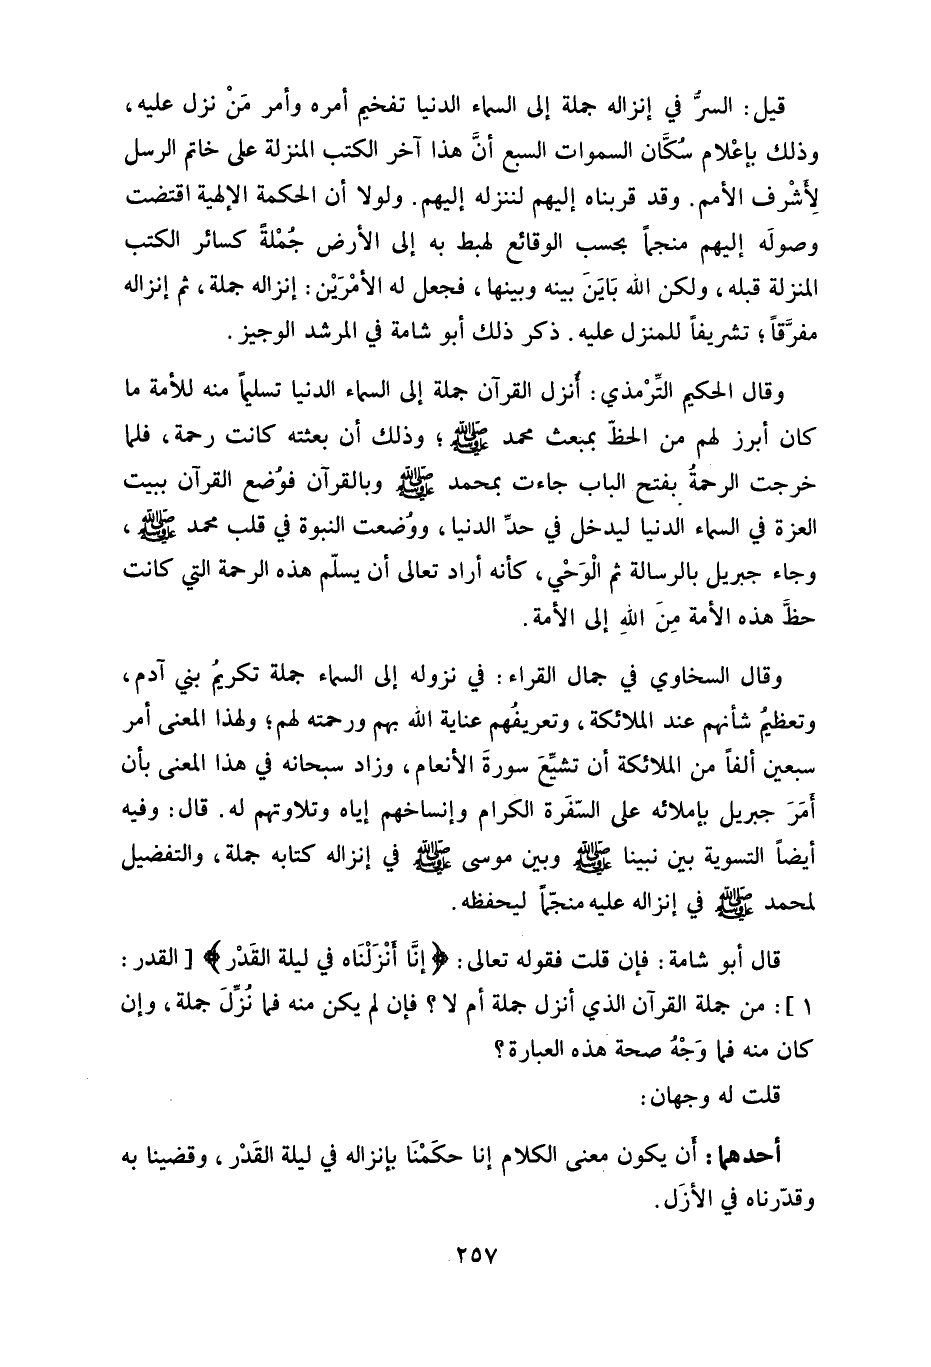 قيل: السرُّ في إنزاله جملة إلى السماء الدنيا تفخيم أمره وأمر مَنْ نزل عليه،
وذلك بإعْلام سُكَّان السموات السبع أنَّ هذا آخر الكتب المنزلة على خاتم الرسل
لِأَشْرف الأمم. وقد قربناه إليهم لننزله إليهم. ولولا أن الحكمة الإلهية اقتضت
وصولَه إليهم منجماً بحسب الوقائع لهبط به إلى الأرض جُمْلةً كسائر الكتب
المنزلة قبله، ولكن الله بَايَنَ بينه وبينها، فجعل له الأمْرَيْن: إنزاله جملة، ثم إنزاله
مفرَّقاً؛ تشريفاً للمنزل عليه. ذكر ذلك أبو شامة في المرشد الوجيز.
وقال الحكيم التِّرْمذي: أَنزل القرآن جملة إلى السماء الدنيا تسليماً منه للأمة ما
كان أبرز لهم من الحظّ بمبعث محمد ﷺ؛ وذلك أن بعثته كانت رحمة، فلما
خرجت الرحمةُ بفتح الباب جاءت بمحمد ﷺ وبالقرآن فوُضع القرآن ببيت
العزة في السماء الدنيا ليدخل في حدِّ الدنيا، ووُضعت النبوة في قلب محمد ﷺ،
وجاء جبريل بالرسالة ثم الْوَحْي، كأنه أراد تعالى أن يسلّم هذه الرحمة التي كانت
حظَّ هذه الأمة مِنَ اللهِ إلى الأمة.
وقال السخاوي في جمال القراء: في نزوله إلى السماء جملة تكريمُ بني آدم،
وتعظيمُ شأنهم عند الملائكة، وتعريفُهم عناية الله بهم ورحمته لهم؛ ولهذا المعنى أمر
سبعين ألفاً من الملائكة أن تشيِّعَ سورةَ الأنعام، وزاد سبحانه في هذا المعنى بأن
أَمَرَ جبريل بإملائه على السّفَرة الكرام وإنساخهم إياه وتلاوتهم له. قال: وفيه
أيضاً التسوية بين نبينا ﷺ وبين موسى ﷺ في إنزاله كتابه جملة، والتفضيل
لمحمد ﷺ في إنزاله عليه منجّماً ليحفظه.
قال أبو شامة: فإن قلت فقوله تعالى: ﴿إنَّا أَنْزَلْنَاه في ليلة القَدْر﴾ [ القدر:
١ ]: من جملة القرآن الذي أنزل جملة أم لا؟ فإن لم يكن منه فما نُزِّلَ جملة، وإن
كان منه فما وَجْهُ صحة هذه العبارة؟
قلت له وجهان:
أحدهما: أَن يكون معنى الكلام إنا حكَمْنَا بإنزاله في ليلة القَدْر، وقضينا به
وقدّرناه في الأزَل.
٢٥٧